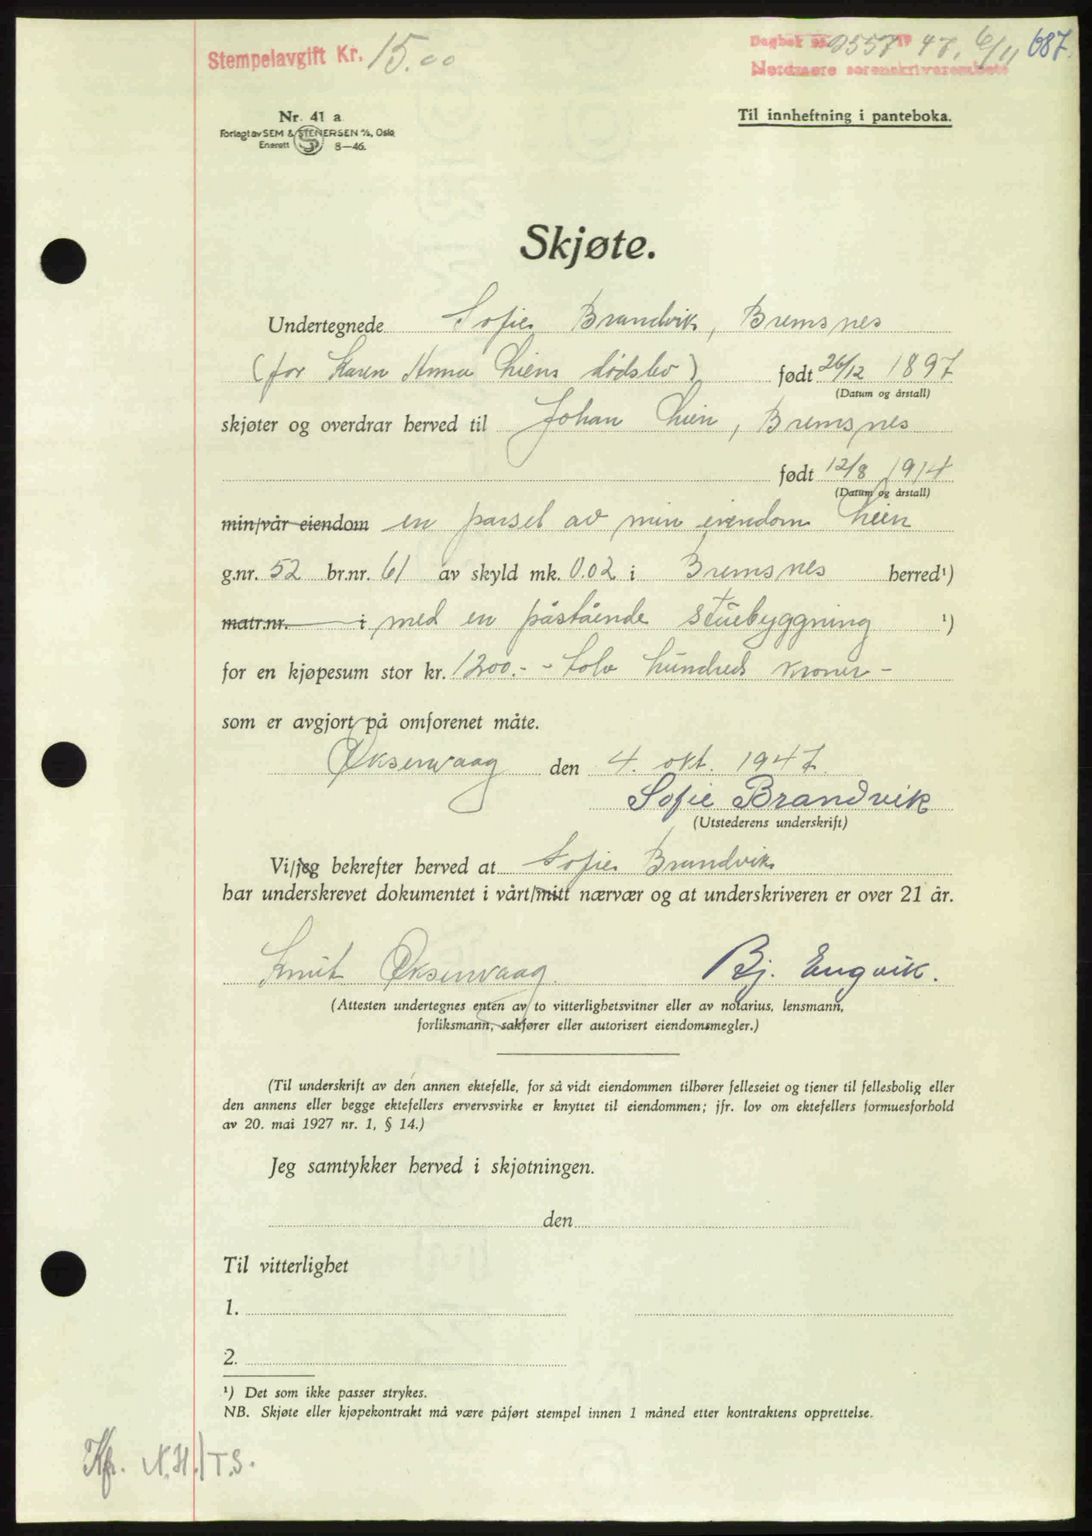 Stempelavgift Kr. 15.00
Dagbok 2557 19 47, 6/11 687.
Nordmøre sorenskriverembete
Nr. 41 a
Til innheftning i panteboka.
Forlagt av SEM & STENERSEN A/S, Oslo
Enerett 8-46.
Skjøte.
Undertegnede Sofie Brandvik, Bremsnes
(for Karen Anna Liens dødsbo) født 26/12 1897
(Datum og årstall)
skjøter og overdrar herved til Johan Lien, Bremsnes
født 12/8 1914
(Datum og årstall)
min/vår eiendom en parsel av min eiendom Lien
g.nr. 52 br.nr. 61 av skyld mk. 0.02 i Bremsnes herred¹)
matr.nr. i med en påstående stuebyggning ¹)
for en kjøpesum stor kr. 1200.- - tolv hundred kroner -
som er avgjort på omforenet måte.
Øksenvaag den 4. okt. 1947
Sofie Brandvik
(Utstederens underskrift)
Vi/jeg bekrefter herved at Sofie Brandvik
har underskrevet dokumentet i vårt/mitt nærvær og at underskriveren er over 21 år.
Knut Øksenvaag. Bj. Engvik.
(Attesten undertegnes enten av to vitterlighetsvitner eller av notarius, lensmann,
forliksmann, sakfører eller autorisert eiendomsmegler.)
(Til underskrift av den annen ektefelle, for så vidt eiendommen tilhører felleseiet og tjener til fellesbolig eller
den annens eller begge ektefellers ervervsvirke er knyttet til eiendommen; jfr. lov om ektefellers formuesforhold
av 20. mai 1927 nr. 1, § 14.)
Jeg samtykker herved i skjøtningen.
den
Til vitterlighet
1.
2.
¹) Det som ikke passer strykes.
NB. Skjøte eller kjøpekontrakt må være påført stempel innen 1 måned etter kontraktens opprettelse.
Kfr. N.H./T.S.